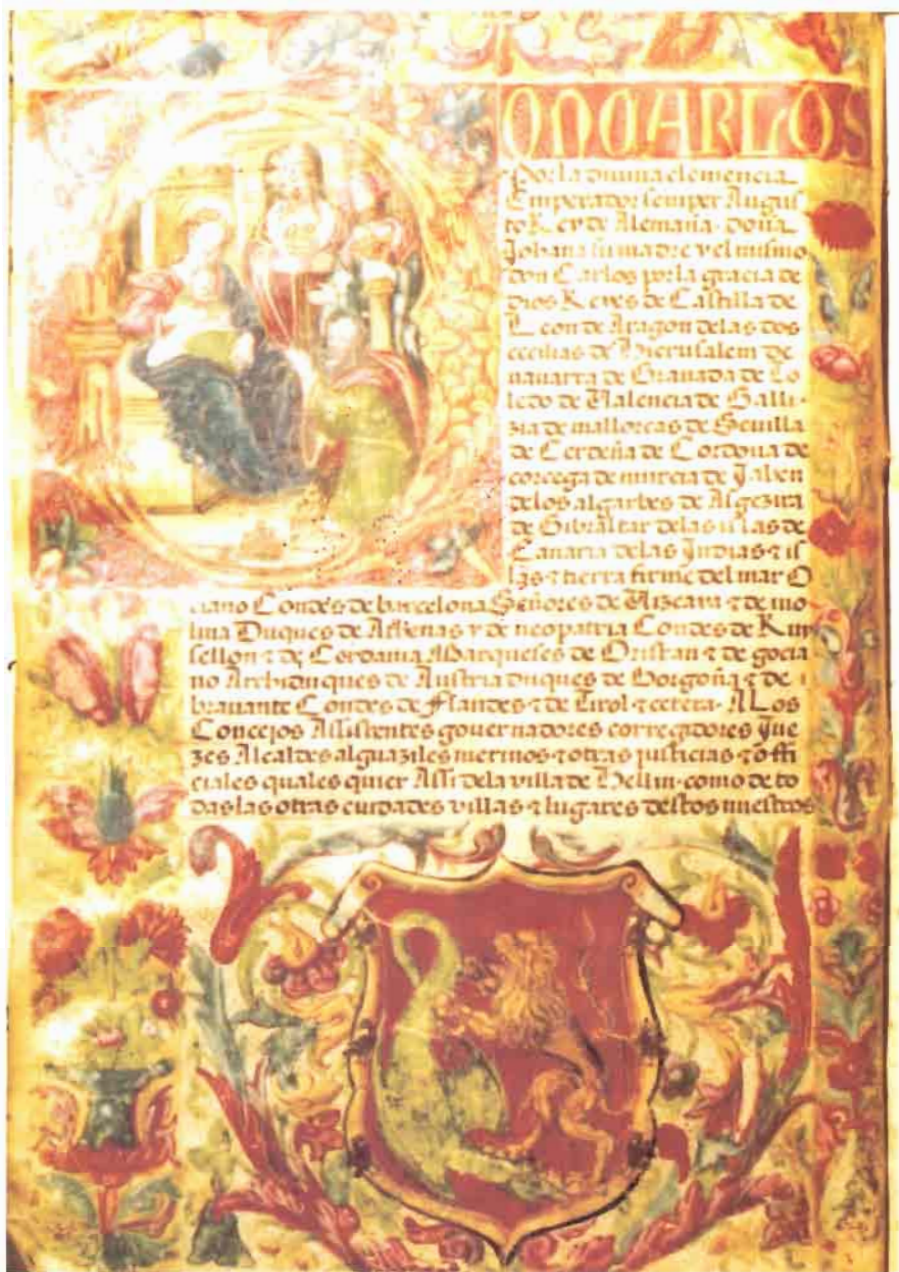 ON CARLOS
Por la divina clemencia
Emperador semper Augus
to Rey de Alemaña. doña
Johana su madre y el mismo
don Carlos por la gracia de
Dios Reyes de Castilla de
Leon de Aragon delas dos
cecilias de Hierusalem de
navarra de Granada de To
ledo de Valencia de Galli-
zia de mallorcas de Sevilla
de Cerdeña de Cordova de
corcega de murcia de Jahen
delos algarbes de Algezira
de Gibraltar delas islas de
Canaria delas Indias ⁊ is
las ⁊ tierra firme del mar O
ciano Condes de barcelona Señores de Vizcaya ⁊ de mo
lina Duques de Athenas y de neopatria Condes de Ruy
sellon ⁊ de Cerdania Marqueses de Oristan ⁊ de gocia
no Archiduques de Austria duques de Borgoña ⁊ de
bravante Condes de Flandes ⁊ de Tirol ⁊ cetera. A Los
Concejos Assistentes governadores corregidores Jue
zes Alcaldes alguaziles merinos ⁊ otras justicias ⁊ offi
ciales quales quier Assi dela villa de Hellin. como de to
das las otras ciudades villas ⁊ lugares destos nuestros